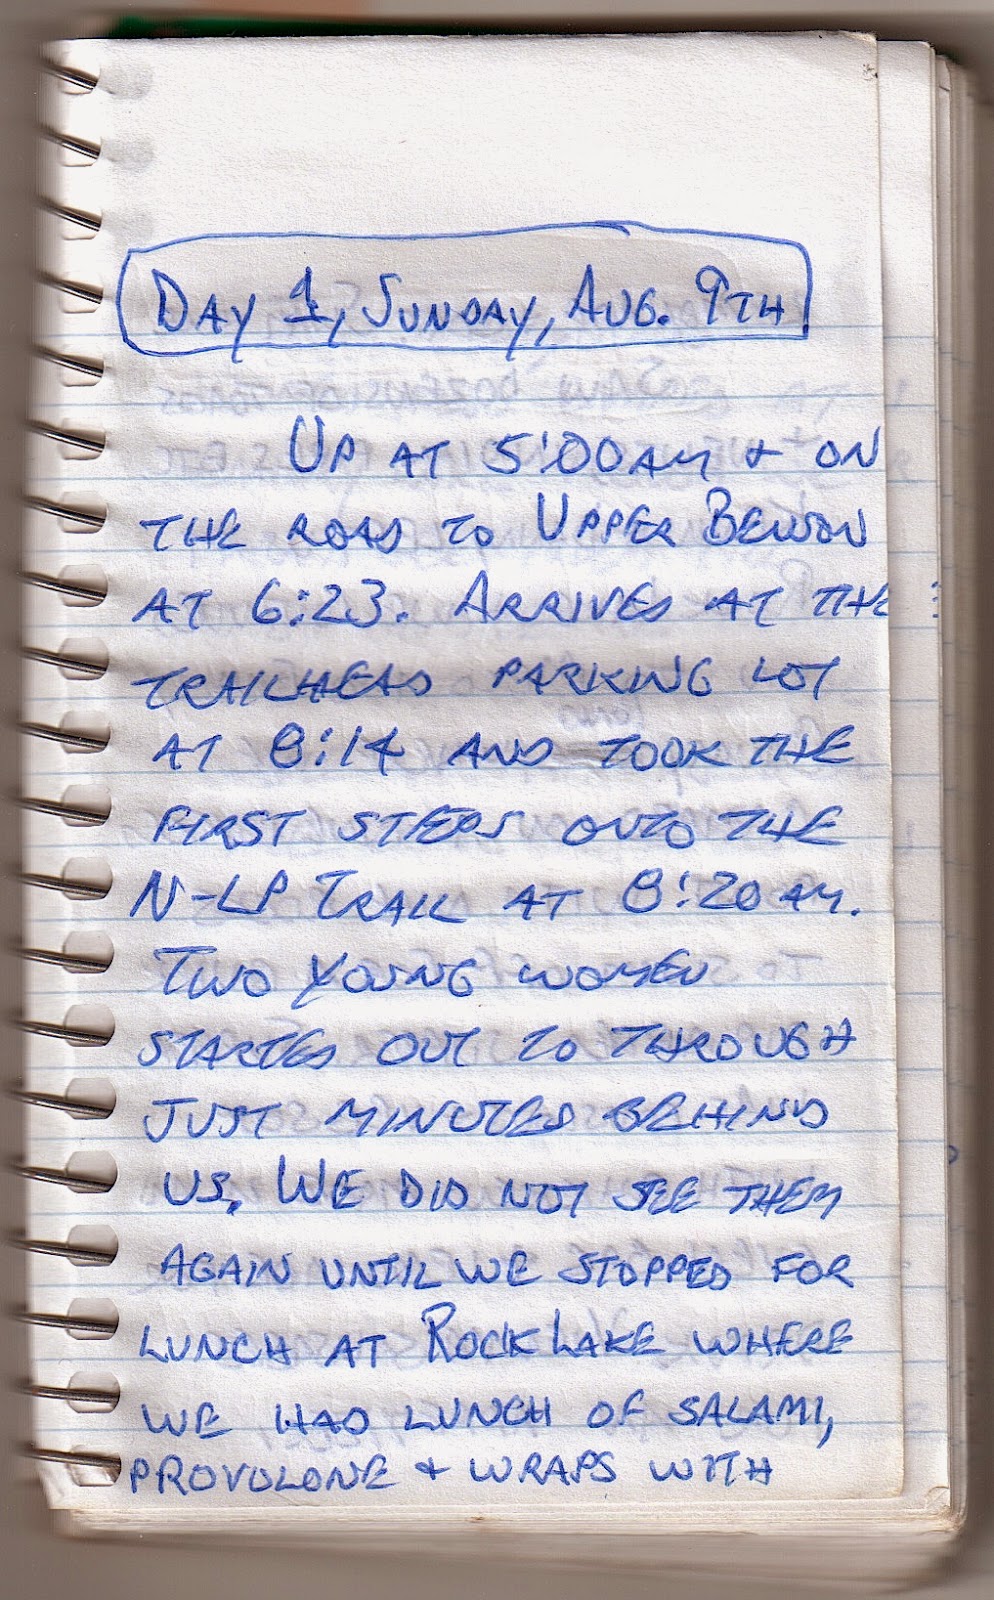 DAY 1, SUNDAY, AUG. 9TH
UP AT 5:00 AM & ON
THE ROAD TO UPPER BENSON
AT 6:23. ARRIVED AT THE
TRAILHEAD PARKING LOT
AT 8:14 AND TOOK THE
FIRST STEPS ONTO THE
N-LP TRAIL AT 8:20 AM.
TWO YOUNG WOMEN
STARTED OUT TO THROUGH
JUST MINUTES BEHIND
US. WE DID NOT SEE THEM
AGAIN UNTIL WE STOPPED FOR
LUNCH AT ROCK LAKE WHERE
WE HAD LUNCH OF SALAMI,
PROVOLONE & WRAPS WITH